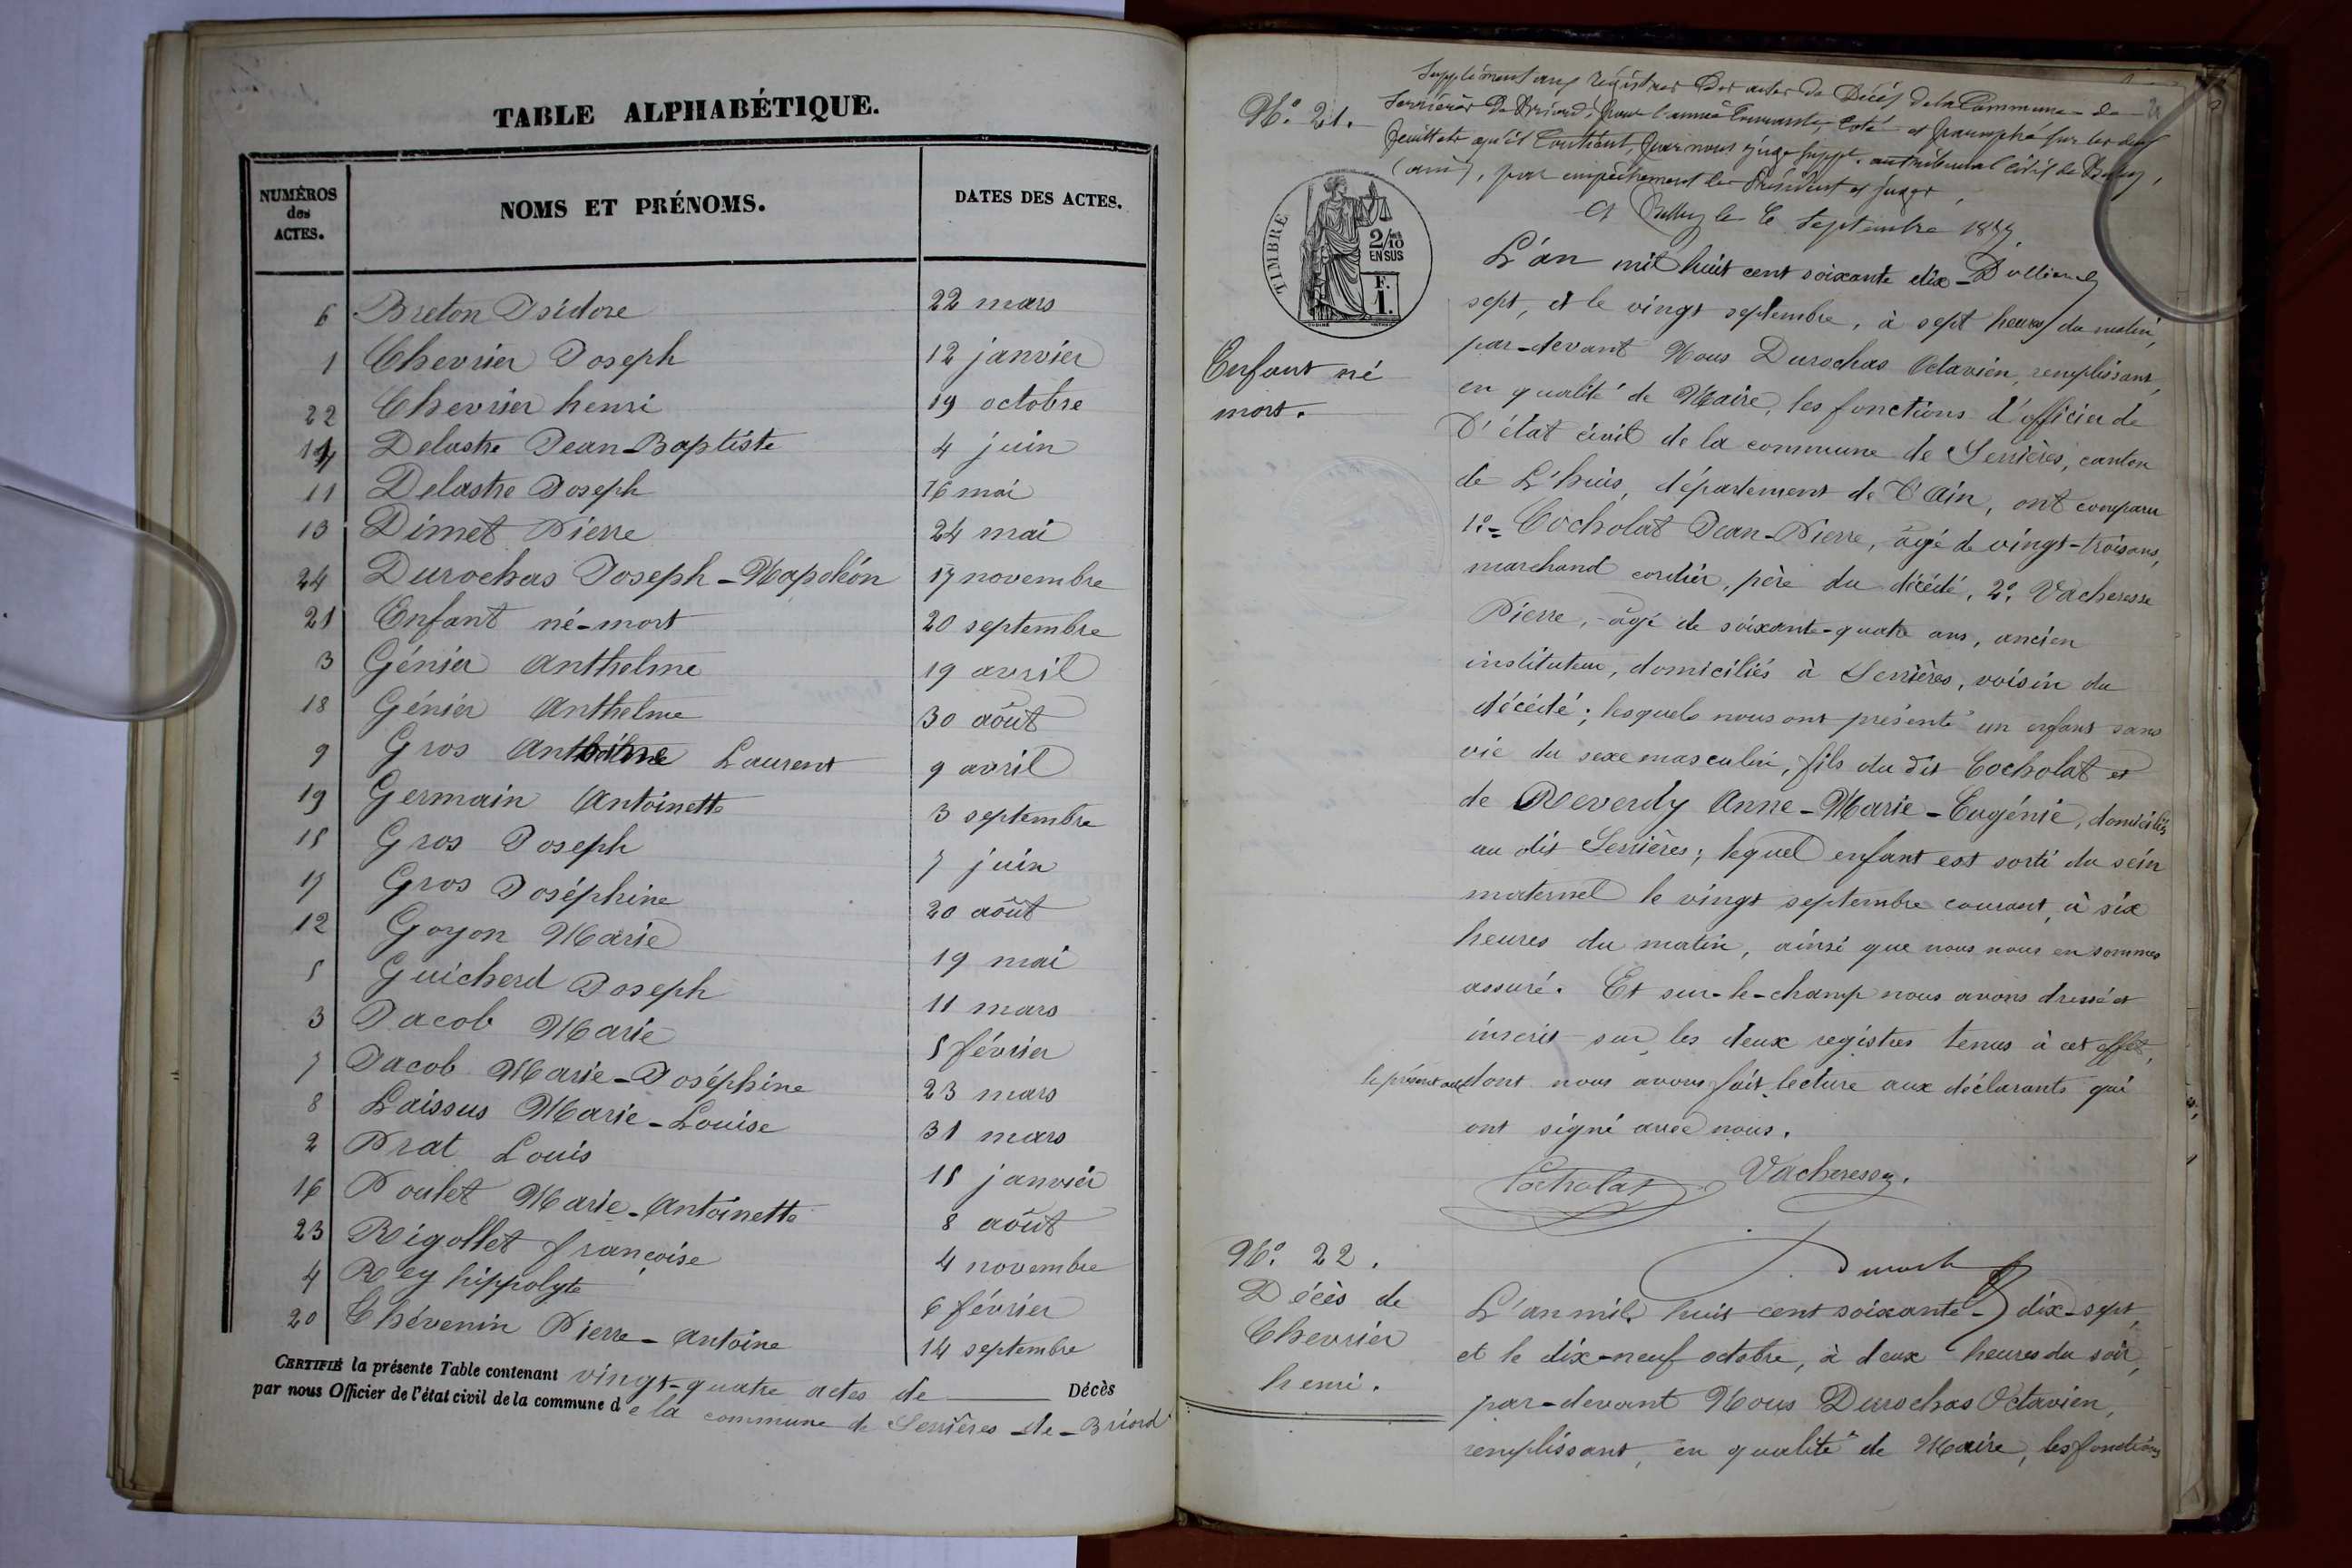 TABLE ALPHABÉTIQUE.
NUMÉROS des ACTES. NOMS ET PRÉNOMS. DATES DES ACTES.
6 Breton Isidore 22 mars
1 Chevrier Joseph 12 janvier
22 Chevrier henri 19 octobre
14 Delastre Jean-Baptiste 4 juin
11 Delastre Joseph 16 mai
13 Dimet Pierre 24 mai
24 Durochas Joseph-Napoléon 17 novembre
21 Enfant né-mort 20 septembre
3 Génier Anthelme 19 avril
18 Génier Anthelme 30 août
9 Gros Laurent 9 avril
19 Germain Antoinette 3 septembre
15 Gros Joseph 7 juin
17 Gros Joséphine 20 août
12 Goyon Marie 19 mai
5 Guicherd Joseph 11 mars
3 Jacob Marie 5 février
7 Jacob Marie-Joséphine 23 mars
8 Laissus Marie-Louise 31 mars
2 Prat Louis 15 janvier
16 Poulet Marie-Antoinette 8 août
23 Rigollet françoise 4 novembre
4 Rey hippolyte 6 février
20 Thévenin Pierre-Antoine 14 septembre
CERTIFIÉ la présente Table contenant vingt-quatre actes de Décès
par nous Officier de l'état civil de la commune de la commune de Serrières-de-Briord
Supplément aux régistres des actes de Décès de la Commune de
Serrières de Briord, pour l'année courante, coté et paraphé sur les deux
feuillets qu'il contient, par nous juge suppt. au tribunal civil de Belley,
(ain), par empêchement des Président et juges,
A Belley le 6 Septembre 1877.
N° 21.
TIMBRE
2/10 EN SUS
F. 1.
Enfant né
mort.
L'an mil huit cent soixante dix-
sept, et le vingt septembre, à sept heures du matin,
par-devant Nous Durochas Octavien, remplissant,
en qualité de Maire, les fonctions d'officier de
l'état civil de la commune de Serrières, canton
de L'huis, département de l'Ain, ont comparu
1°- Cocholat Jean-Pierre, âgé de vingt-trois ans,
marchand cordier, père du décédé, 2°. Vacheresse
Pierre, âgé de soixante-quatre ans, ancien
instituteur, domiciliés à Serrières, voisin du
décédé; lesquels nous ont présenté un enfant sans
vie du sexe masculin, fils du dit Cocholat et
de Reverdy Anne-Marie-Eugénie, domiciliés
au dit Serrières; lequel enfant est sorti du sein
maternel le vingt septembre courant, à six
heures du matin, ainsi que nous nous en sommes
assuré. Et sur-le-champ nous avons dressé et
inscrit sur les deux registres tenus à cet effet,
le présent acte dont nous avons fait lecture aux déclarants qui
ont signé avec nous.
Cocholat Vacheresse.
N° 22.
Décès de
Chevrier
henri.
L'an mil huit cent soixante-dix-sept,
et le dix-neuf octobre, à deux heures du soir,
par-devant Nous Durochas Octavien,
remplissant, en qualité de Maire, les fonctions